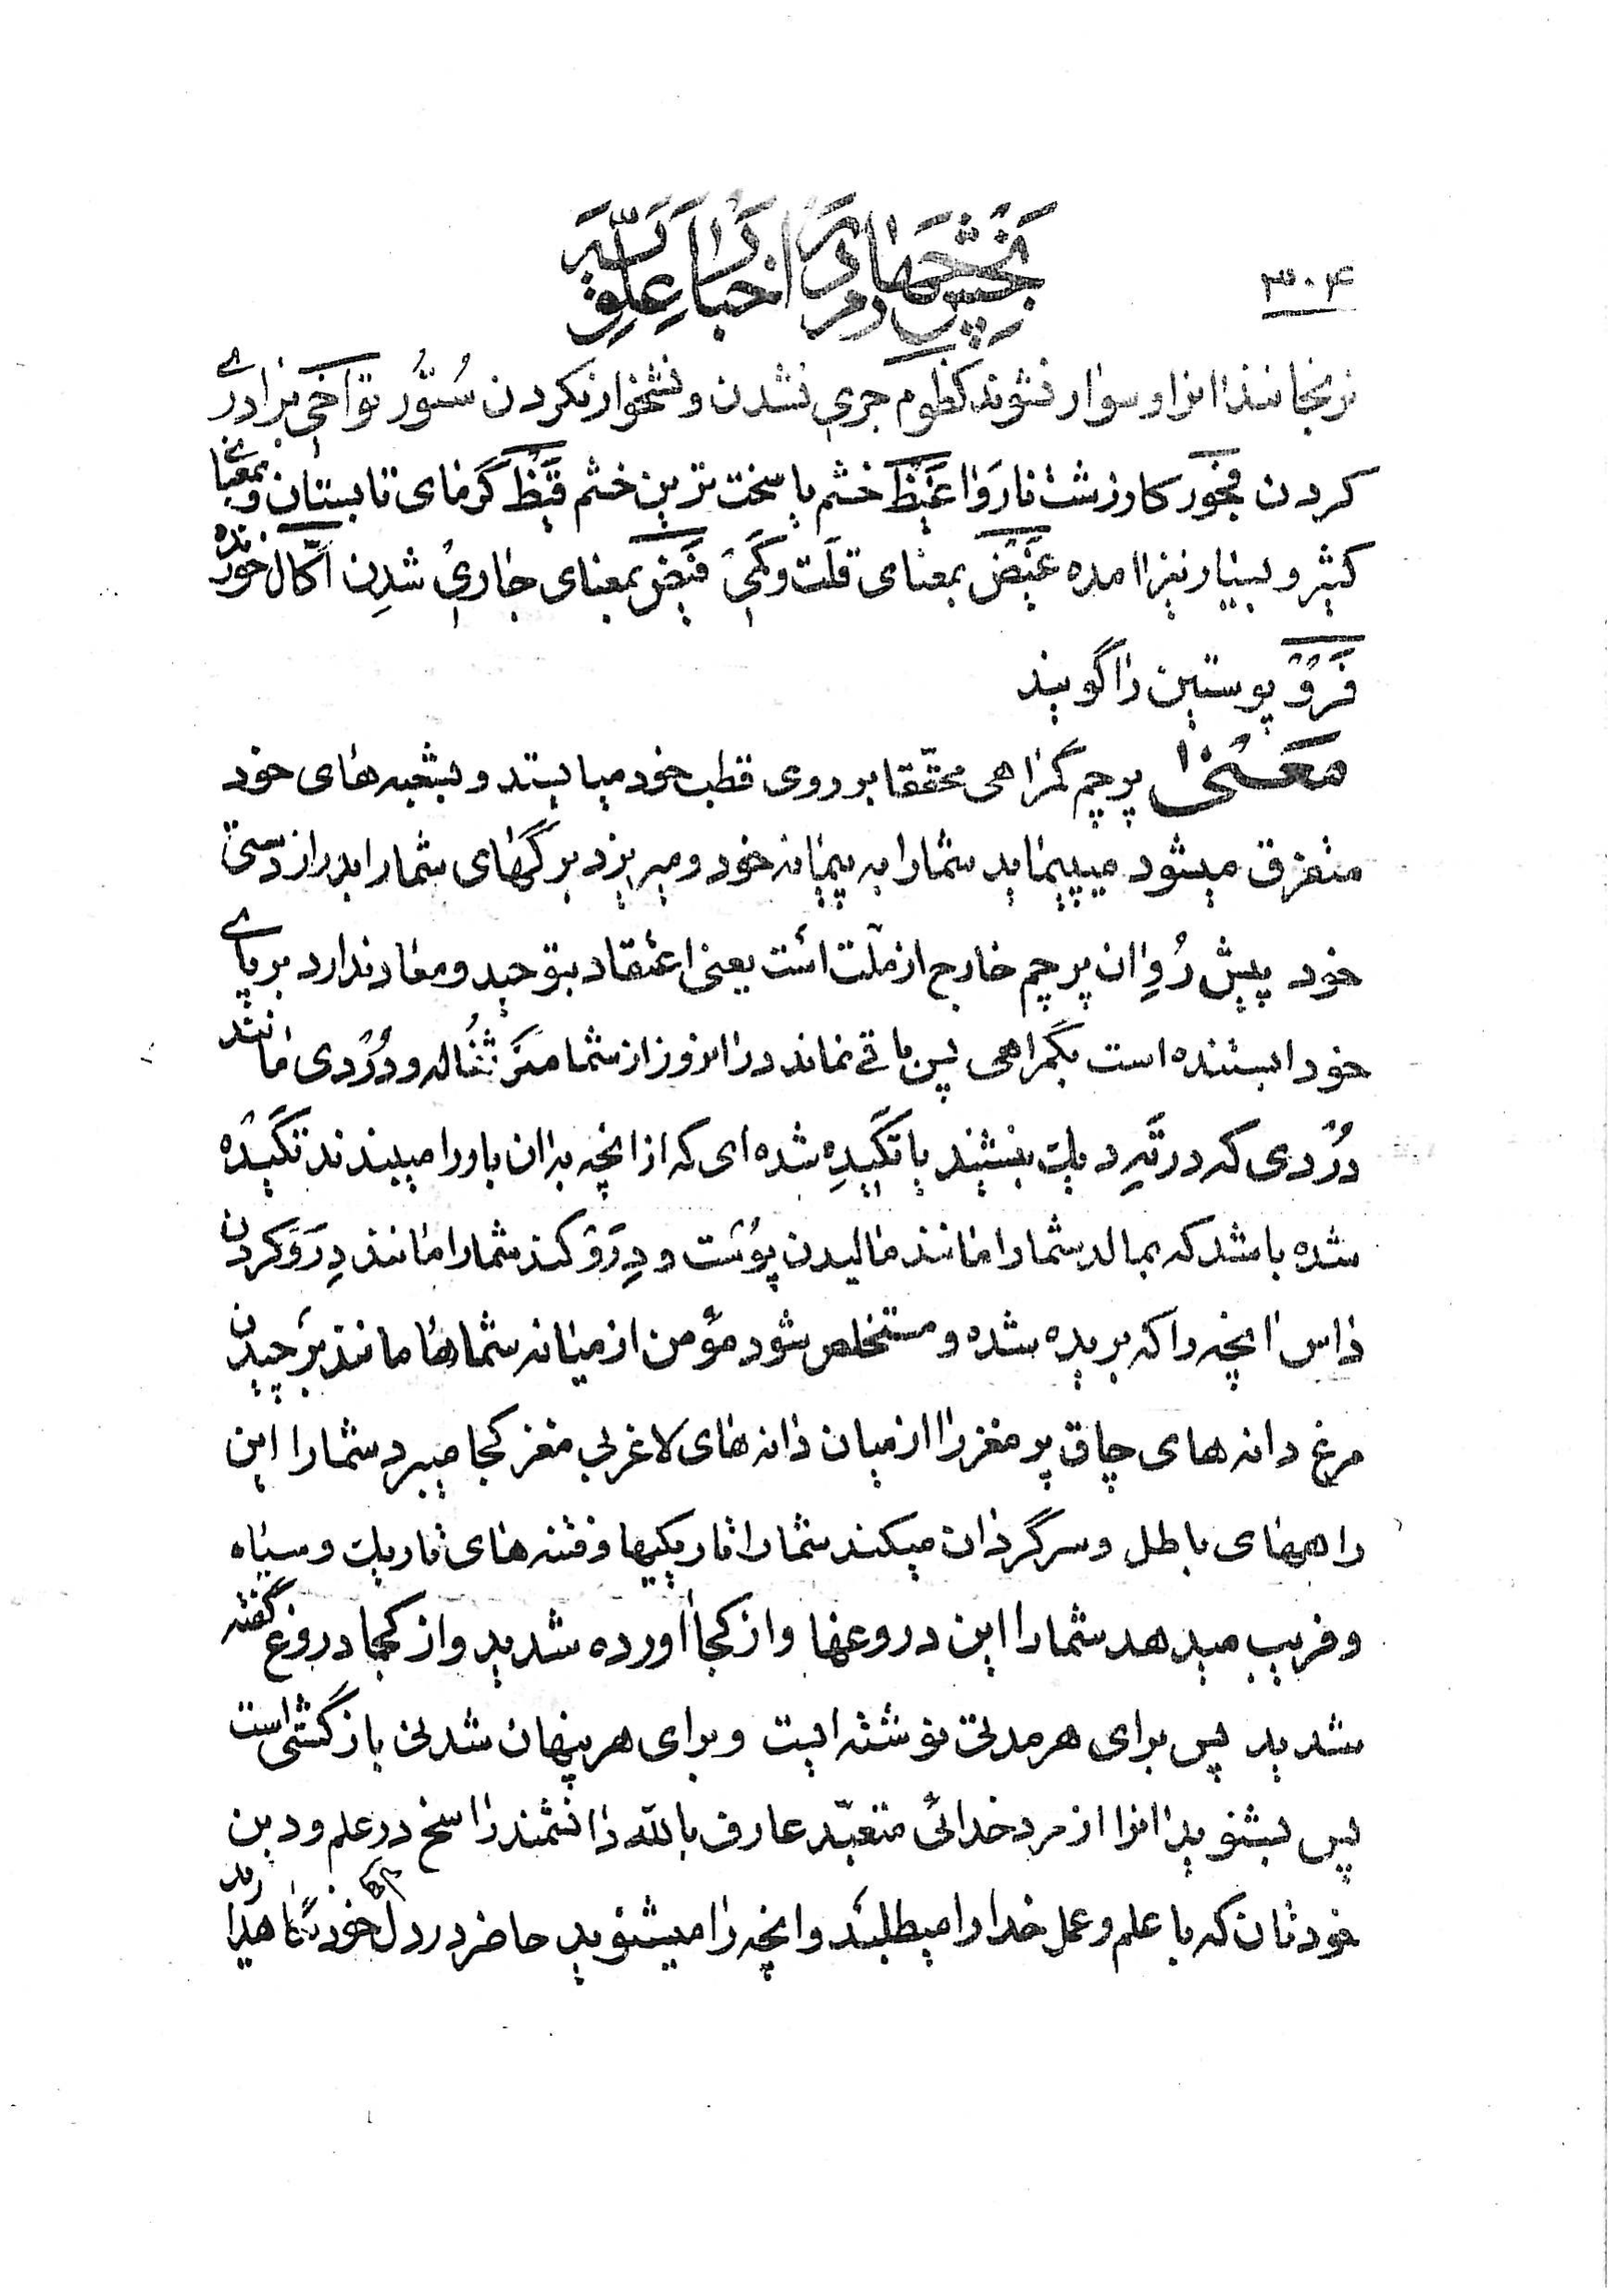 بخش چهارم در اخبار علویه
۳۰۴
نرنجانند انرا و سوار نشوند کظوم جری نشدن و نشخوار نکردن ستور تواخی برادری
کردن فجور کار زشت ناروا غیظ خشم یا سخت ترین خشم قیظ گرمای تابستان و بمعنای
کثیر و بسیار نیز امده غیض بمعنای قلت و کمی فیض بمعنای جاری شدن اکال خورنده
فرو پوستین را گویند
معنی پرچم گمراهی محققا بر روی قطب خود میایستد و بشعبه های خود
متفرق میشود میپیماید شما را به پیمانه خود و میریزد برگهای شما را بدراز دستی
خود پیش رو ان پرچم خارج از ملت است یعنی اعتقاد بتوحید و معاد ندارد بر پای
خود ایستنده است بگمراهی پس باقی نماند در انروز از شما مگر ثفاله و دردی مانند
دردی که در ته دیک بنشیند یا تکیده شده ای که از انچه بدان باورا میبندند تکیده
شده باشد که بمالد شما را مانند مالیدن پوست و درو کند شما را مانند درو کردن
داس انچه را که بریده شده و مستخلص شود مؤمن از میانه شماها مانند برچیدن
مرغ دانه های چاق پر مغز را از میان دانه های لاغر بی مغز کجا میبرد شما را این
راههای باطل و سرگردان میکند شما را تاریکیها و فتنه های تاریک و سیاه
و فریب میدهد شما را این دروغها و از کجا اورده شدید و از کجا دروغ گفته
شدید پس برای هر مدتی نوشته ایست و برای هر پنهان شدنی بازگشتی است
پس بشنوید انرا از مرد خدائی متعبد عارف بالله دانشمند راسخ در علم و دین
خودتان که با علم و عمل خدا را میطلبد و انچه را میشنوید حاضر در دل خود نگاهدارید